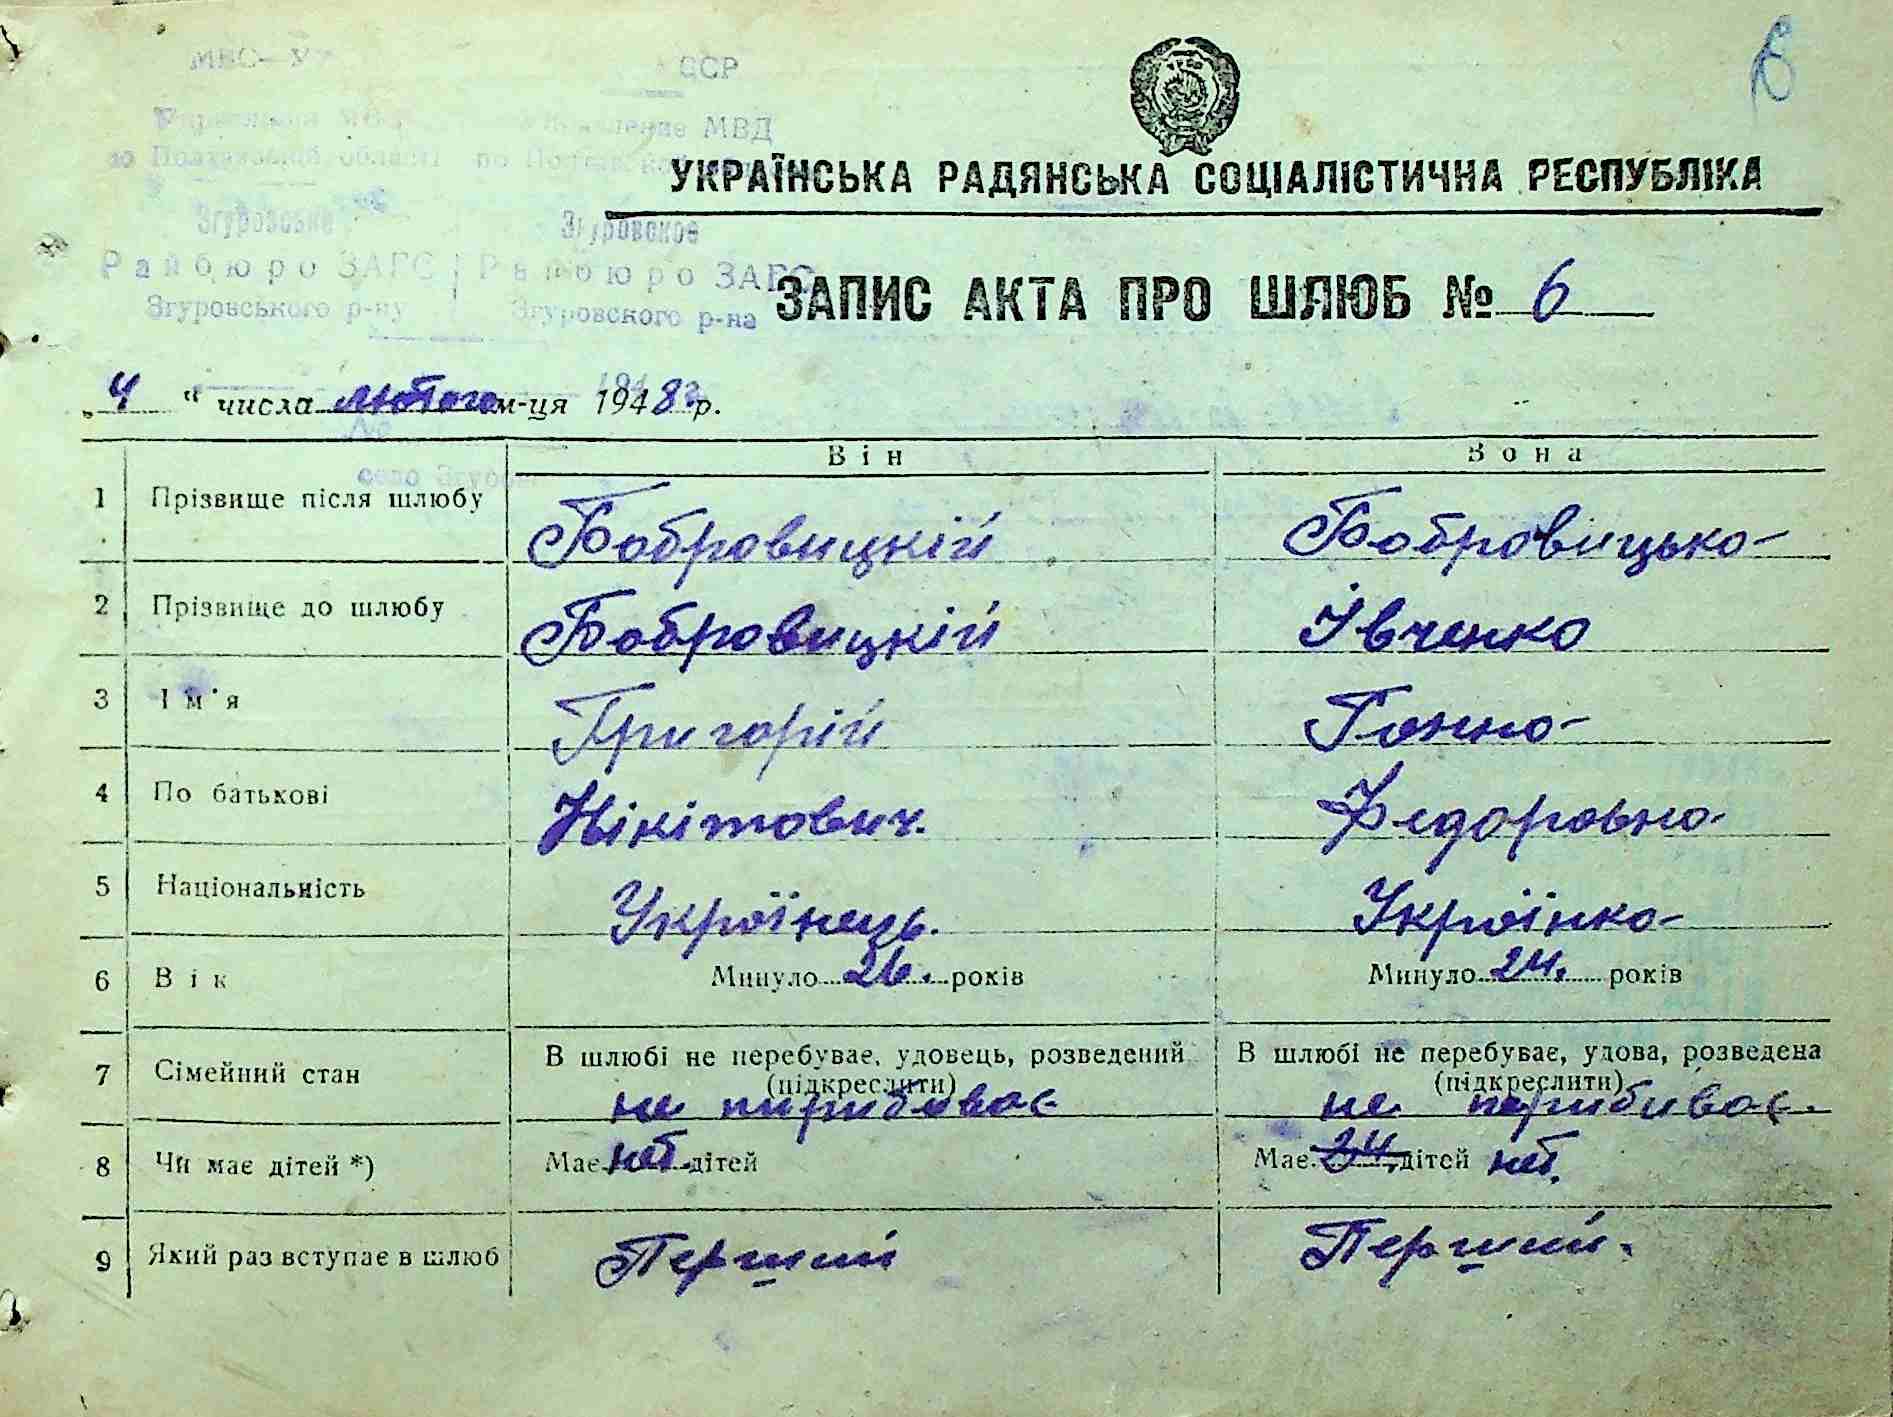 ССР
МВД
по Полтавській області по Полтавской
Згуровське Згуровское
Райбюро ЗАГС Райбюро ЗАГС
Згуровського р-ну Згуровского р-на
6
УКРАЇНСЬКА РАДЯНСЬКА СОЦІАЛІСТИЧНА РЕСПУБЛІКА
ЗАПИС АКТА ПРО ШЛЮБ № 6
„4“ числа лютого м-ця 1948 р.
село
Він Вона
1 Прізвище після шлюбу Бобровицкій Бобровицька
2 Прізвище до шлюбу Бобровицкій Івченко
3 Ім'я Григорій Ганна
4 По батькові Нікітович. Федоровна
5 Національність Українець. Українка
6 Вік Минуло 26. років Минуло 24. років
7 Сімейний стан В шлюбі не перебуває, удовець, розведений В шлюбі не перебуває, удова, розведена
(підкреслити) (підкреслити)
не пирибиває не пирибиває.
8 Чи має дітей *) Має нет. дітей Має 24. дітей нет.
9 Який раз вступає в шлюб Перший Перший.